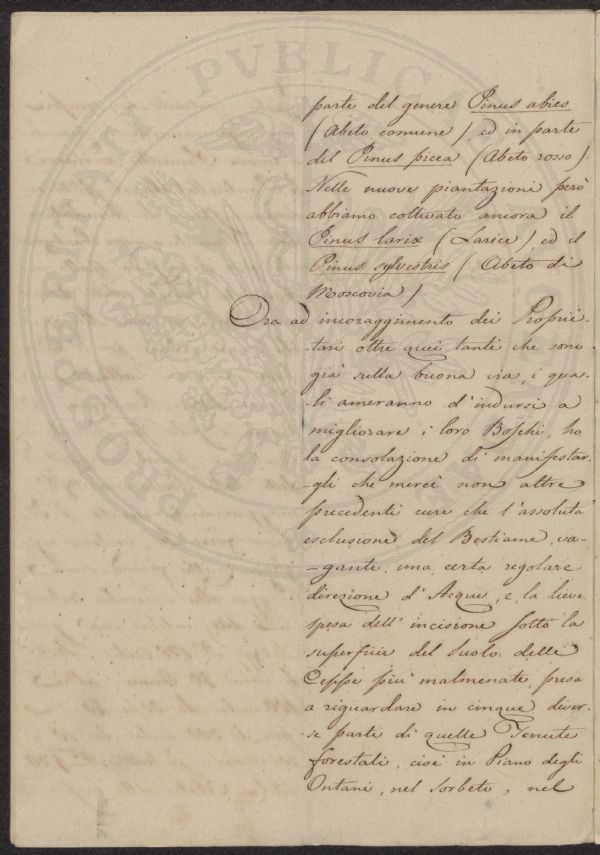 parte del genere Pinus abies
(Abeto comune) ed in parte
del Pinus picea (Abeto rosso).
Nelle nuove piantazioni però
abbiamo coltivato ancora il
Pinus larix (Larice) ed il
Pinus sylvestris (Abeto di
Moscovia)
Ora ad incoraggimento dei Proprie-
-tari oltre quei tanti che sono
già sulla buona via, i qua-
-li ameranno d'indursi a
migliorare i loro Boschi, ho
la consolazione di manifestar-
-gli che mercè non altre
precedenti cure che l'assoluta
esclusione del Bestiame va-
-gante, una certa regolare
direzione d'Acque, e la lieve
spesa dell'incisione sotto la
superficie del Suolo delle
Ceppe più malmenate, presa
a riguardare in cinque diver-
-se parti di quelle Tenute
forestali, cioè in Piano degli
Ontani, nel Sorbeto, nel